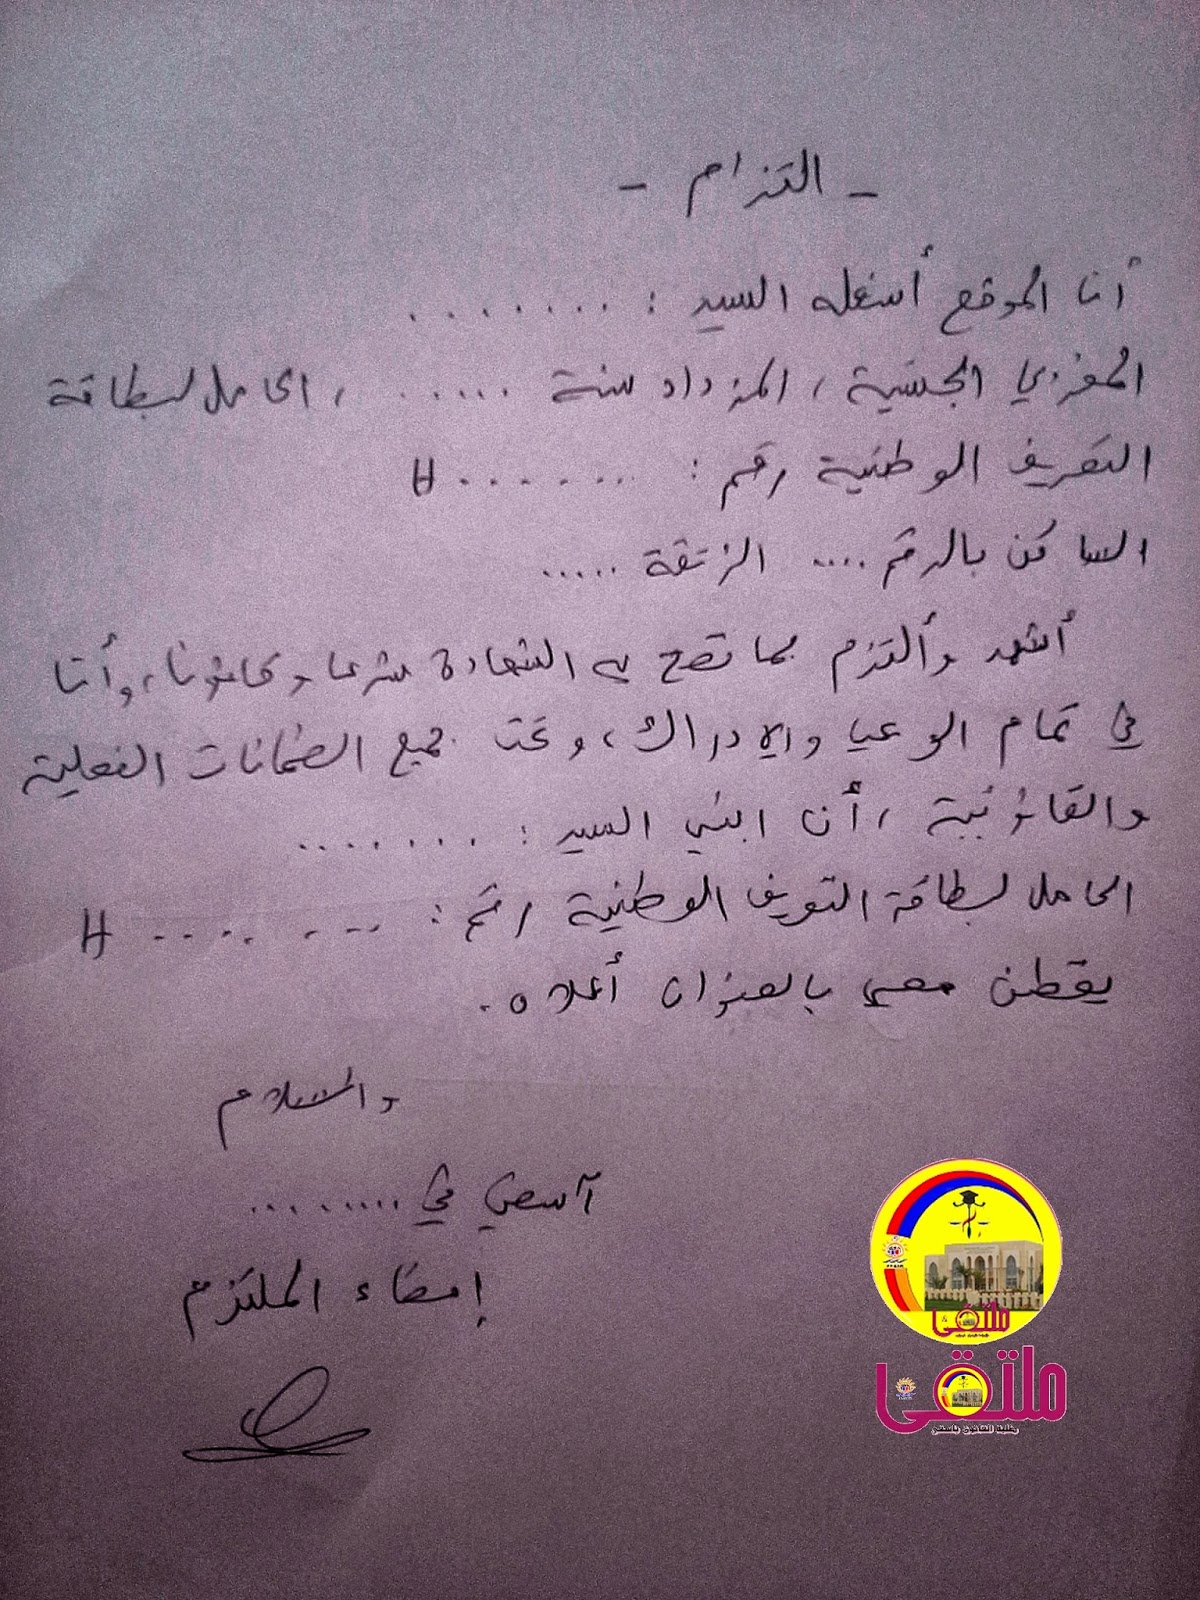 - التزام -
أنا الموقع أسفله السيد : ........
المغربي الجنسية ، المزداد سنة ...... ، الحامل لبطاقة
التعريف الوطنية رقم : ........ H
الساكن بالرقم .... الزنقة .....
أشهد وألتزم بما تصح به الشهادة شرعا وقانونا، وأنا
في تمام الوعي والإدراك، وتحت جميع الضمانات الفعلية
والقانونية ، أن ابني السيد : ........
الحامل لبطاقة التعريف الوطنية رقم : ......... H
يقطن معي بالعنوان أعلاه.
والسلام
آسفي في .........
إمضاء الملتزم
ملتقى
ملتقى
طلبة القانون بآسفي